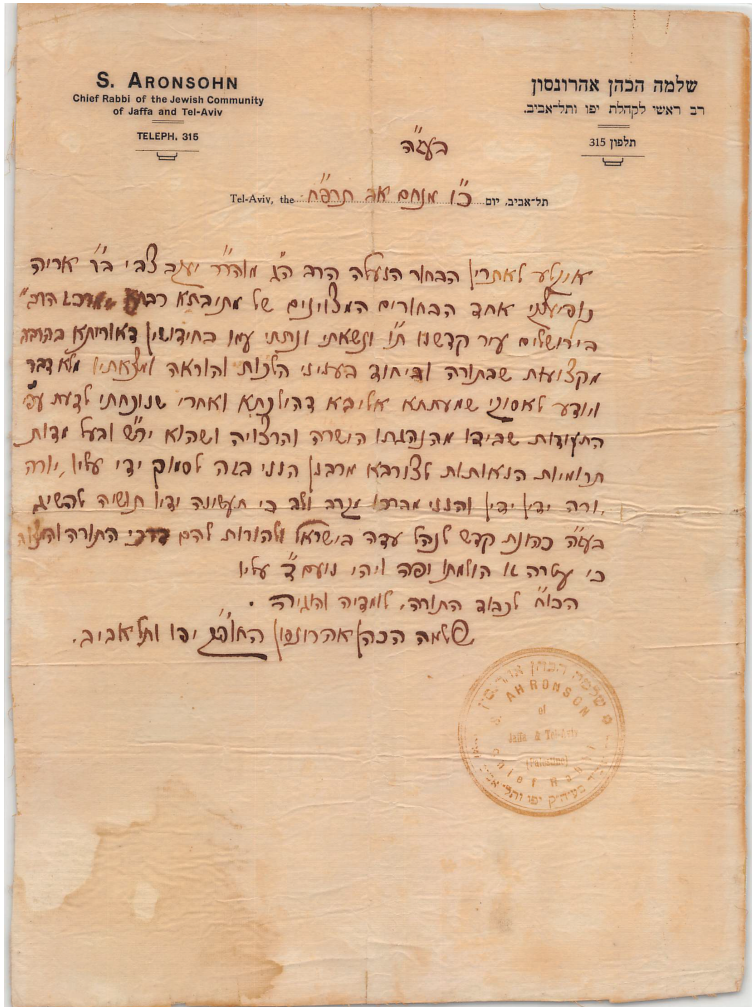 S. ARONSOHN
Chief Rabbi of the Jewish Community
of Jaffa and Tel-Aviv
TELEPH. 315
שלמה הכהן אהרונסון
רב ראשי לקהלת יפו ותל־אביב.
תלפון 315
בעז"ה
Tel-Aviv, the כ"ו מנחם אב תרפ"ח תל־אביב, יום
איקלע לאתרין הבחור הנעלה הרב הג' מוהר"ר יעקב צבי ב"ר אריה
אחד הבחורים המצוינים של מתיבתא רבתא מרכז הרב"
בירושלים עיר קדשנו ת"ו ונשאתי ונתתי עמו בחידושין דאורייתא בהרבה
מקצועות שבתורה וביחוד בעניני הלכות והוראה ומצאתיו מלא דבר
ויודע לאסוקי שמעתתא אליבא דהילכתא ואחרי שנוכחתי לדעת עפ"י
התעודות שבידו מהנהגתו הישרה והרצויה ושהוא ירש ובעל מדות
תרומיות הנאותות לצורבא מרבנן הנני בזה לסמוך ידי עליו, יורה
יורה ידין ידין והנני מברכו מקרב ולב כי תעשינה ידיו תושיה להשיג
בעז"ה כהונת קדש לנהל עדה בישראל ולהורות להם דרכי התורה והמצוה
כי עטרה זו הולמתו יפה ויהי נועם ד' עליו
הכו"ח לכבוד התורה, לומדיה והוגיה.
שלמה הכהן אהרונסון החופ"ק יפו ותל אביב.
שלמה הכהן אהרונסון
S. AHRONSOHN
of
Jaffa & Tel-Aviv
(Palestine)
Chief Rabbi
יפו ותל־אביב